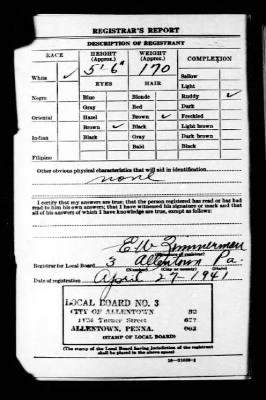 REGISTRAR'S REPORT
DESCRIPTION OF REGISTRANT
RACE
HEIGHT
(Approx.)
WEIGHT
(Approx.)
COMPLEXION
5' 6" 170
White ✓
Sallow
EYES HAIR
Light
Negro Blue Blonde Ruddy ✓
Gray Red Dark
Oriental Hazel Brown ✓ Freckled
Brown ✓ Black Light brown
Indian Black Gray Dark brown
Bald Black
Filipino
Other obvious physical characteristics that will aid in identification
none
I certify that my answers are true; that the person registered has read or has had
read to him his own answers; that I have witnessed his signature or mark and that
all of his answers of which I have knowledge are true, except as follows:
E. W. Zimmerman
Registrar for Local Board 3 Allentown Pa.
(Number) (City or county) (State)
Date of registration April 27-1941
LOCAL BOARD NO. 3
CITY OF ALLENTOWN 82
Turner Street 077
ALLENTOWN, PENNA. 003
(STAMP OF LOCAL BOARD)
(The stamp of the Local Board having jurisdiction of the registrant
shall be placed in the above space)